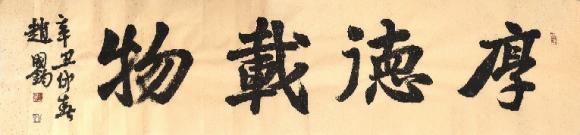 厚德載物
辛丑仲春
趙國勛